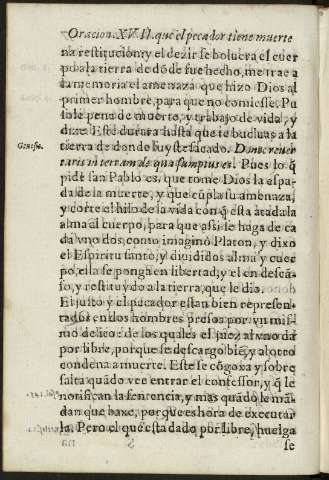 Oracion. XVII. que el pecador tiene muerte
na restitucion: y el dezir se boluera el cuer
po a la tierra de dõde fue hecho, me trae a
la memoria el amenaza que hizo Dios al
primer hombre, para que no comiesse. Pu
sole pena de muerte, y trabajo de vida, y
dize: Esto durara hasta que te bueluas a la
Genesis.
tierra de donde fuyste sacado. Donec reuer
taris in terram de qua sumptus es. Pues lo q̃
pide san Pablo es, que tome Dios la espa-
da de la muerte, y que cũpla su amenaza,
y corte el hilo de la vida con q̃ esta atada la
alma al cuerpo, para que assi se haga de ca
da vno dos, como imaginò Platon, y dixo
el Espiritu santo, y diuididos alma y cuer
po, ella se ponga en libertad, y el en descã-
so, y restituydo a la tierra, que le dio.
El justo y el pecador estan bien represen-
tados en dos hombres presos por vn mis-
mo delito: de los quales el juez al vno da
por libre, porque se descargo biẽ, y al otro
condena a muerte. Este se cõgoxa y sobre
salta quãdo vee entrar el confessor, y q̃ le
notifican la sentencia, y mas quãdo le mã-
dan que baxe, porque es hora de executar
la. Pero el que esta dado por libre, huelga
se